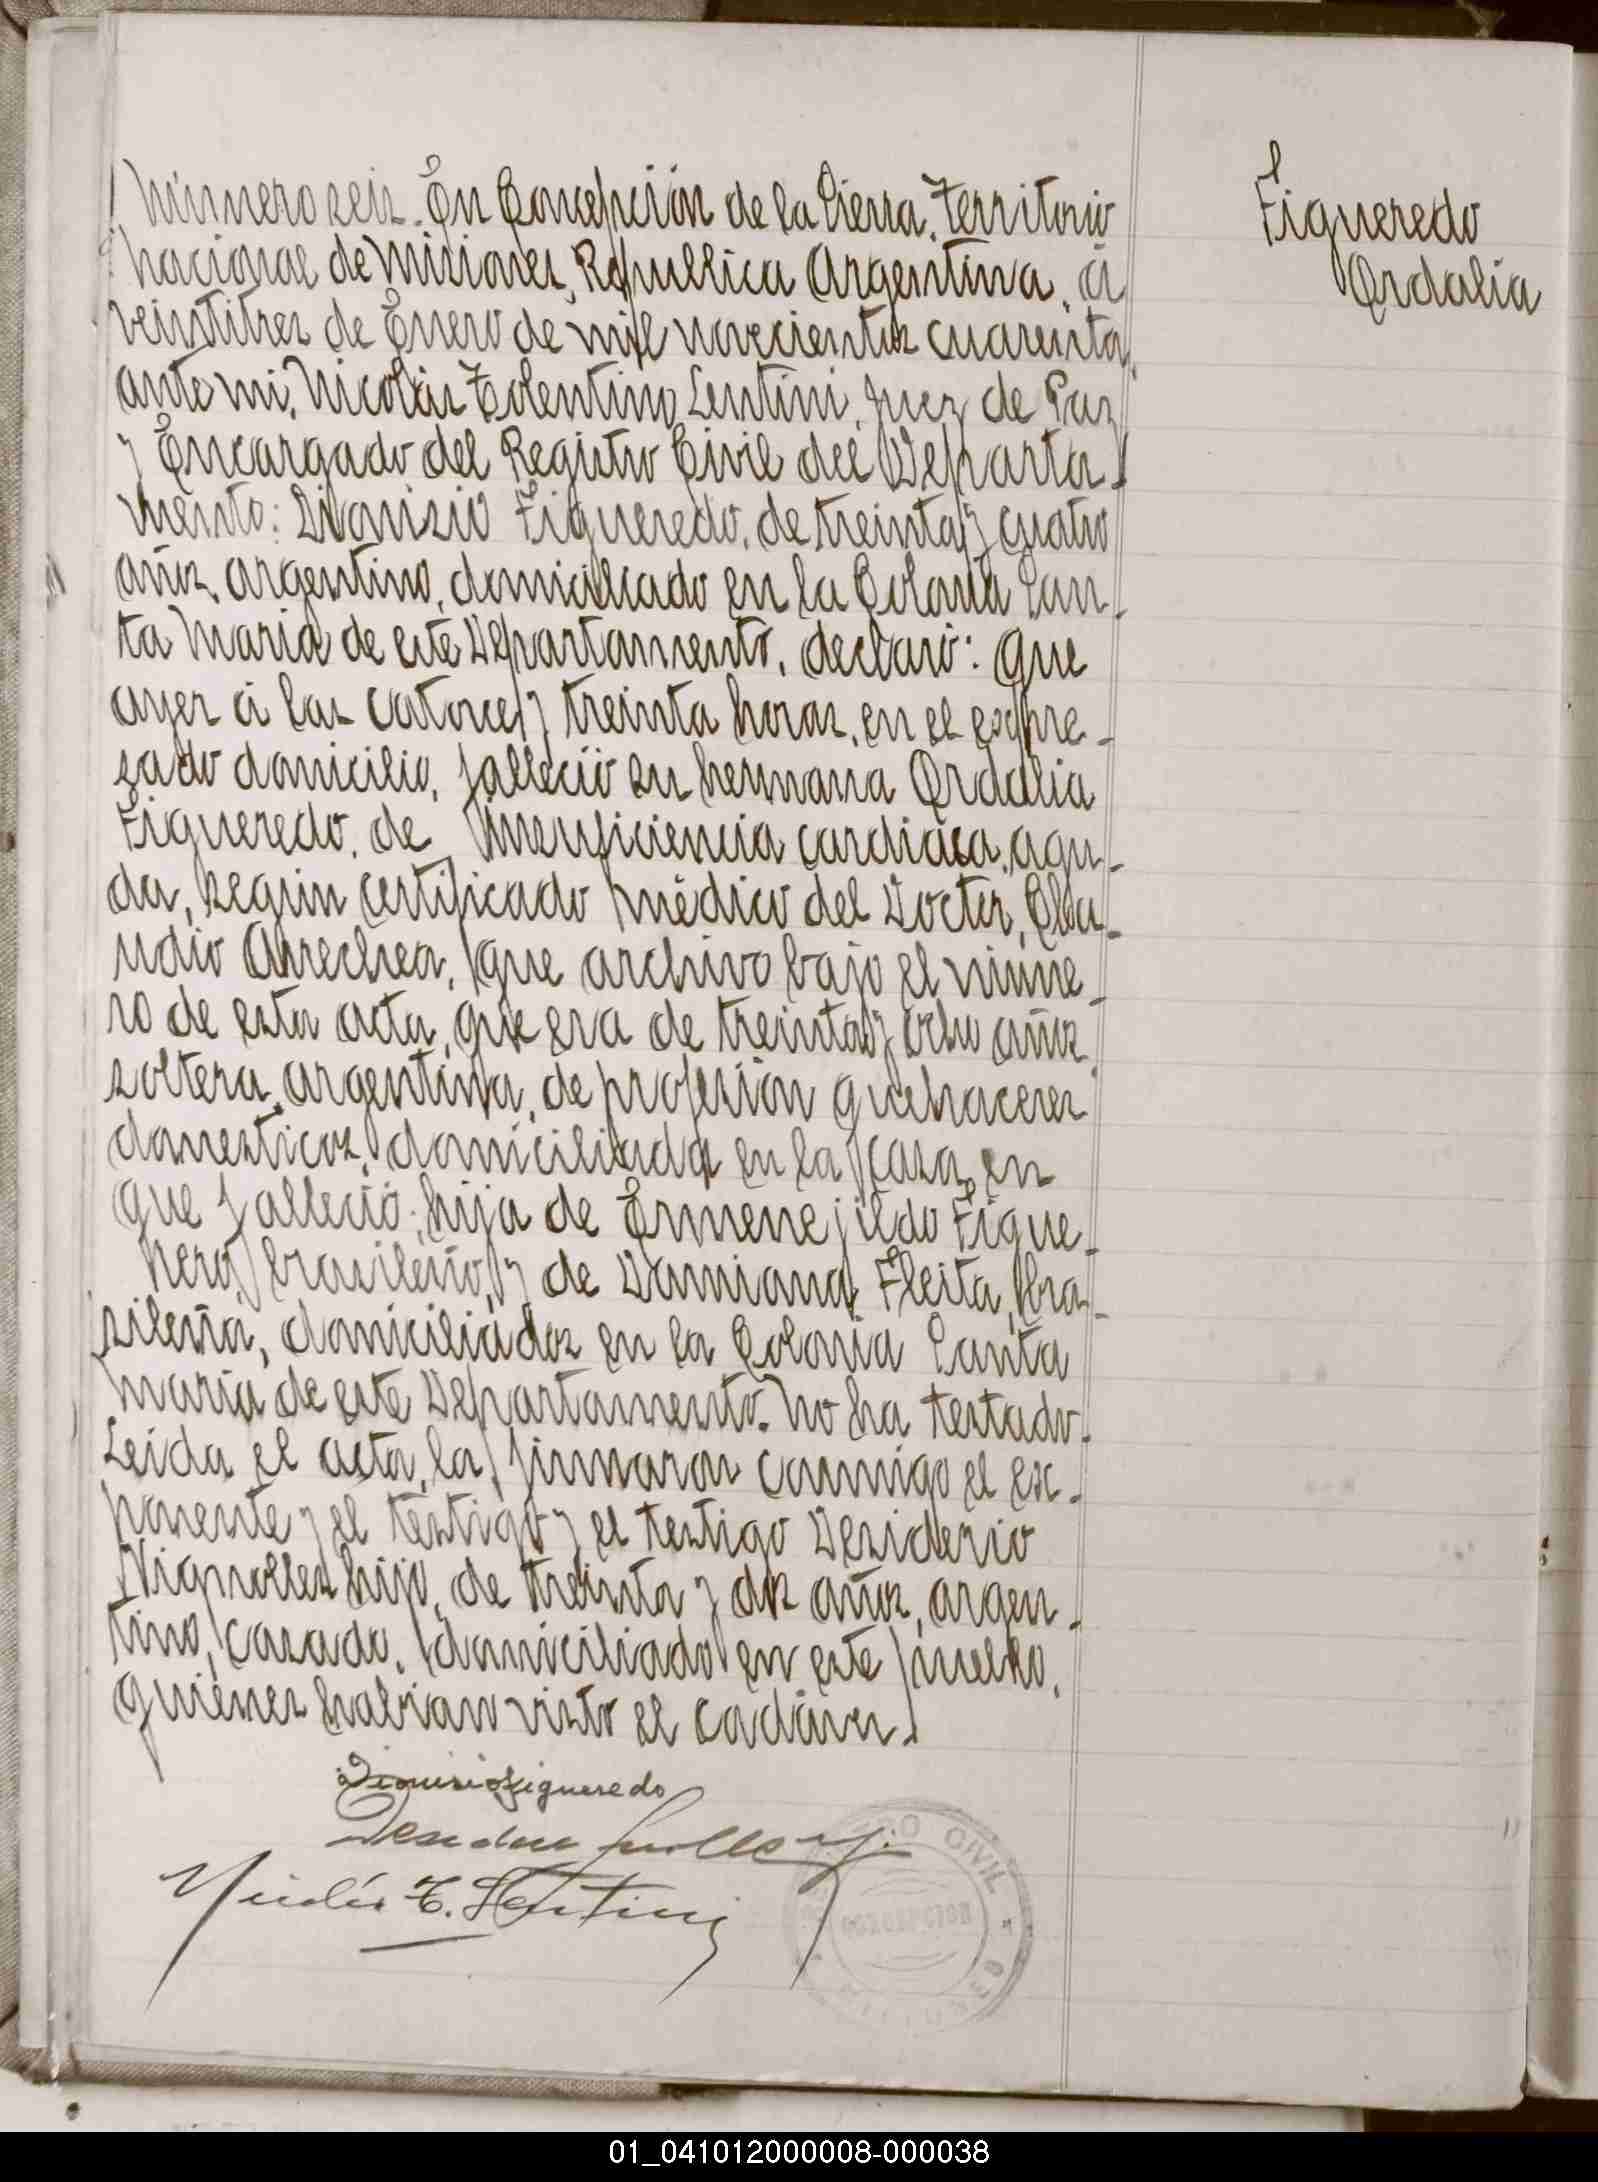 Número seis. En Concepción de la Sierra, Territorio
Nacional de Misiones, Republica Argentina, á
veintitres de Enero de mil novecientos cuarenta,
ante mi, Nicolás Tolentino Lentini, Juez de Paz
y Encargado del Registro Civil del Departa-
mento: Dionisio Figueredo, de treinta y cuatro
años, argentino, domiciliado en la Colonia San-
ta Maria de este Departamento, declaró: Que
ayer á las catorce y treinta horas, en el expre-
sado domicilio, falleció su hermana Ordalia
Figueredo, de Insuficiencia cardiaca, agu-
da, según certificado médico del Doctor, Cla-
udio Arrechea, que archivo bajo el núme-
ro de esta acta, que era de treinta y ocho años
soltera, argentina, de profesión quehaceres
domesticos, domiciliada en la casa en
que falleció; hija de Ermenejildo Figue-
hero, brasileño, y de Damiana Fleita, bra-
sileña, domiciliados en la Colonia Santa
Maria de este Departamento. No ha testado.
Leida el acta, la firmaron conmigo el ex-
ponente y el testigo y el testigo Desiderio
Vignolles hijo, de treinta y dos años, argen-
tino, casado, domiciliado en este pueblo,
quienes habian visto el cadáver.
Dionisio Figueredo
Nicolás T. Lentini
CIVIL
CONCEPCION
MISIONES
Figueredo
Ordalia
01_041012000008-000038